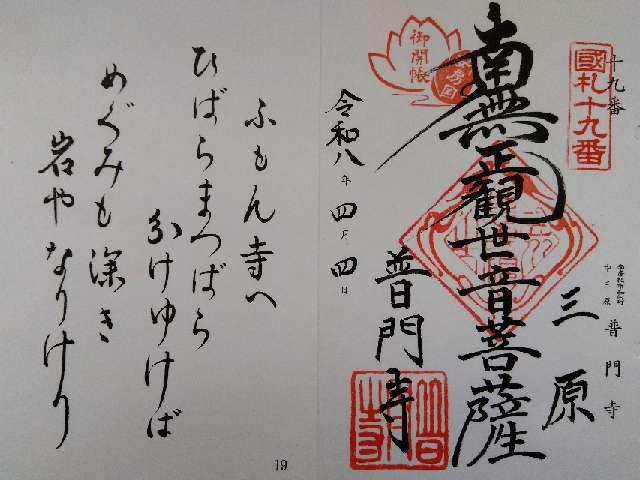 十九番
國札十九番
御開帳
安房国
南無正觀世音菩薩
三原
普門寺
令和八年四月四日
普門寺
ふもん寺へ
ひばらまつばら
分けゆけば
めぐみも深き
岩やなりけり
19